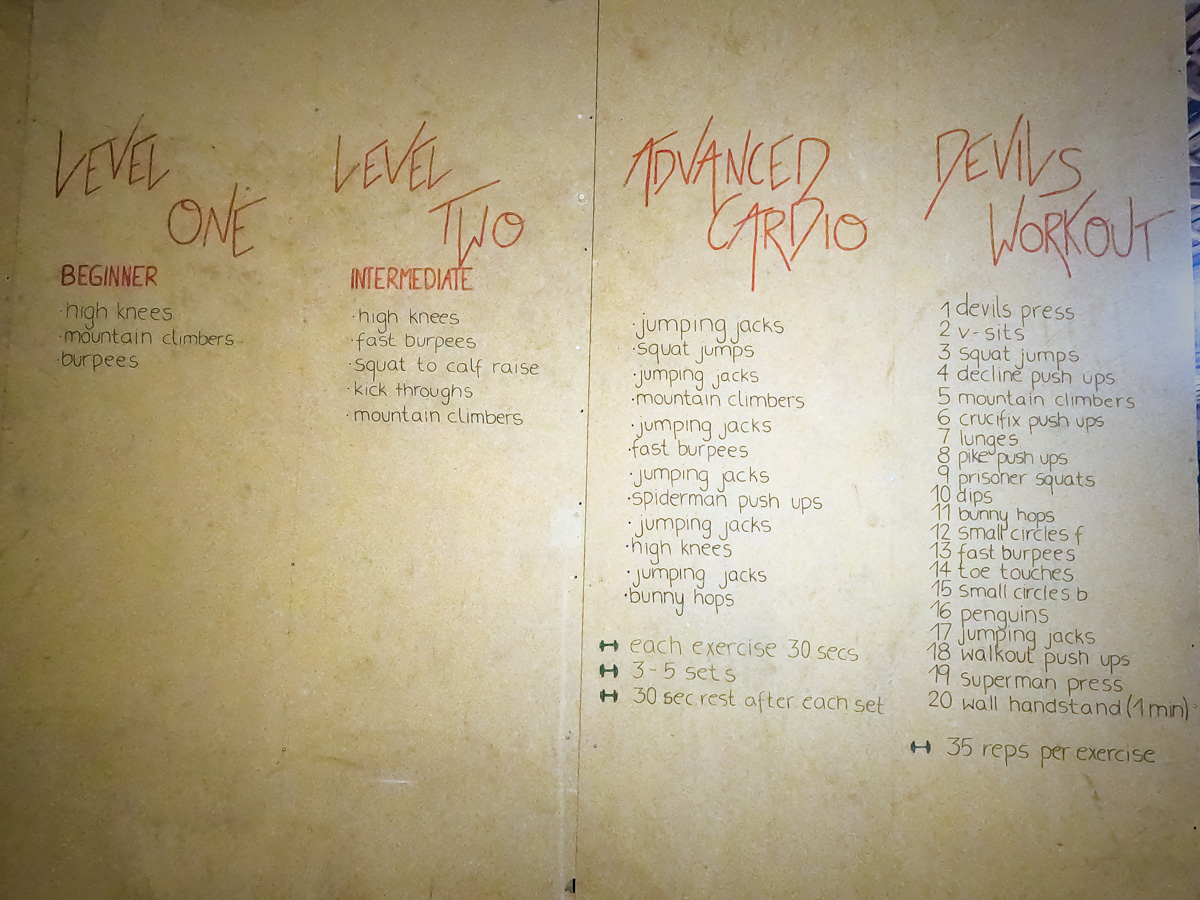 LEVEL
ONE
BEGINNER
·high knees
·mountain climbers
·burpees
LEVEL
TWO
INTERMEDIATE
·high knees
·fast burpees
·squat to calf raise
·kick throughs
·mountain climbers
ADVANCED
CARDIO
·jumping jacks
·squat jumps
·jumping jacks
·mountain climbers
·jumping jacks
·fast burpees
·jumping jacks
·spiderman push ups
·jumping jacks
·high knees
·jumping jacks
·bunny hops
each exercise 30 secs
3-5 sets
30 sec rest after each set
DEVILS
WORKOUT
1 devils press
2 v-sits
3 squat jumps
4 decline push ups
5 mountain climbers
6 crucifix push ups
7 lunges
8 pike push ups
9 prisoner squats
10 dips
11 bunny hops
12 small circles f
13 fast burpees
14 toe touches
15 small circles b
16 penguins
17 jumping jacks
18 walkout push ups
19 superman press
20 wall handstand (1 min)
35 reps per exercise